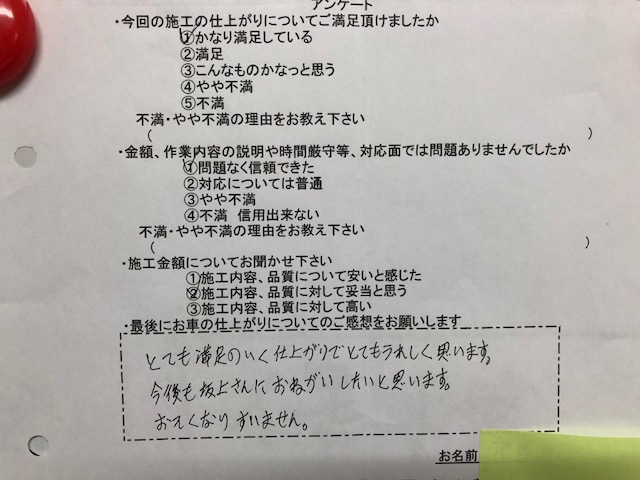 アンケート
・今回の施工の仕上がりについてご満足頂けましたか
①かなり満足している
②満足
③こんなものかなっと思う
④やや不満
⑤不満
不満・やや不満の理由をお教え下さい
( )
・金額、作業内容の説明や時間厳守等、対応面では問題ありませんでしたか
①問題なく信頼できた
②対応については普通
③やや不満
④不満 信用出来ない
不満・やや不満の理由をお教え下さい
( )
・施工金額についてお聞かせ下さい
①施工内容、品質について安いと感じた
②施工内容、品質に対して妥当と思う
③施工内容、品質に対して高い
・最後にお車の仕上がりについてのご感想をお願いします
とても満足のいく仕上がりでとてもうれしく思います。
今後も坂上さんにおねがいしたいと思います。
おそくなりすいません。
お名前